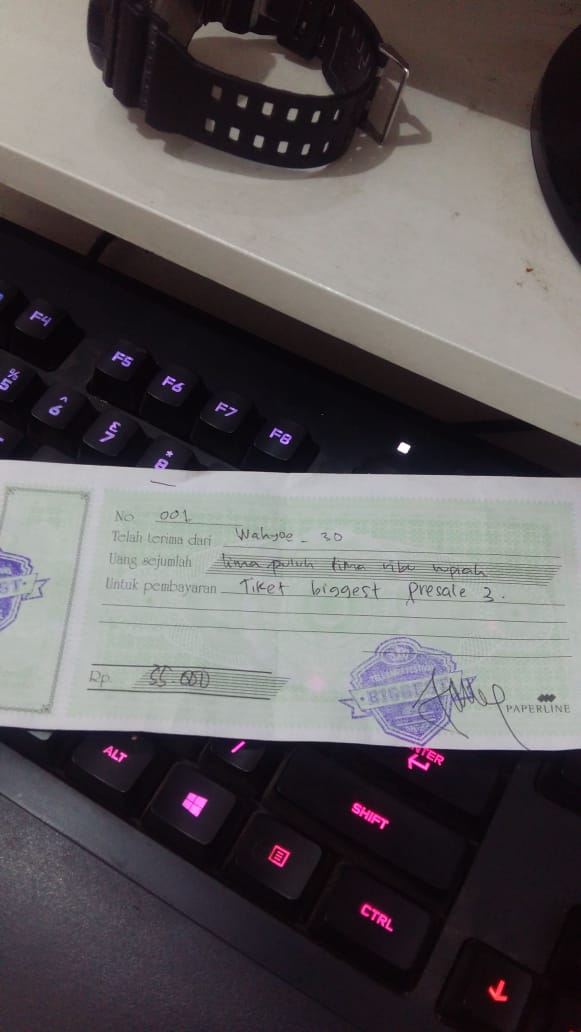 F4
F5
F6
F7
F8
%
5
^
6
£
7
*
8
No 001
Telah terima dari Wahyoe - 30
Uang sejumlah lima puluh lima ribu rupiah
Untuk pembayaran Tiket biggest Presale 3.
Rp. 55.000
BIGGEST
PAPERLINE
ALT
/
ENTER
SHIFT
CTRL